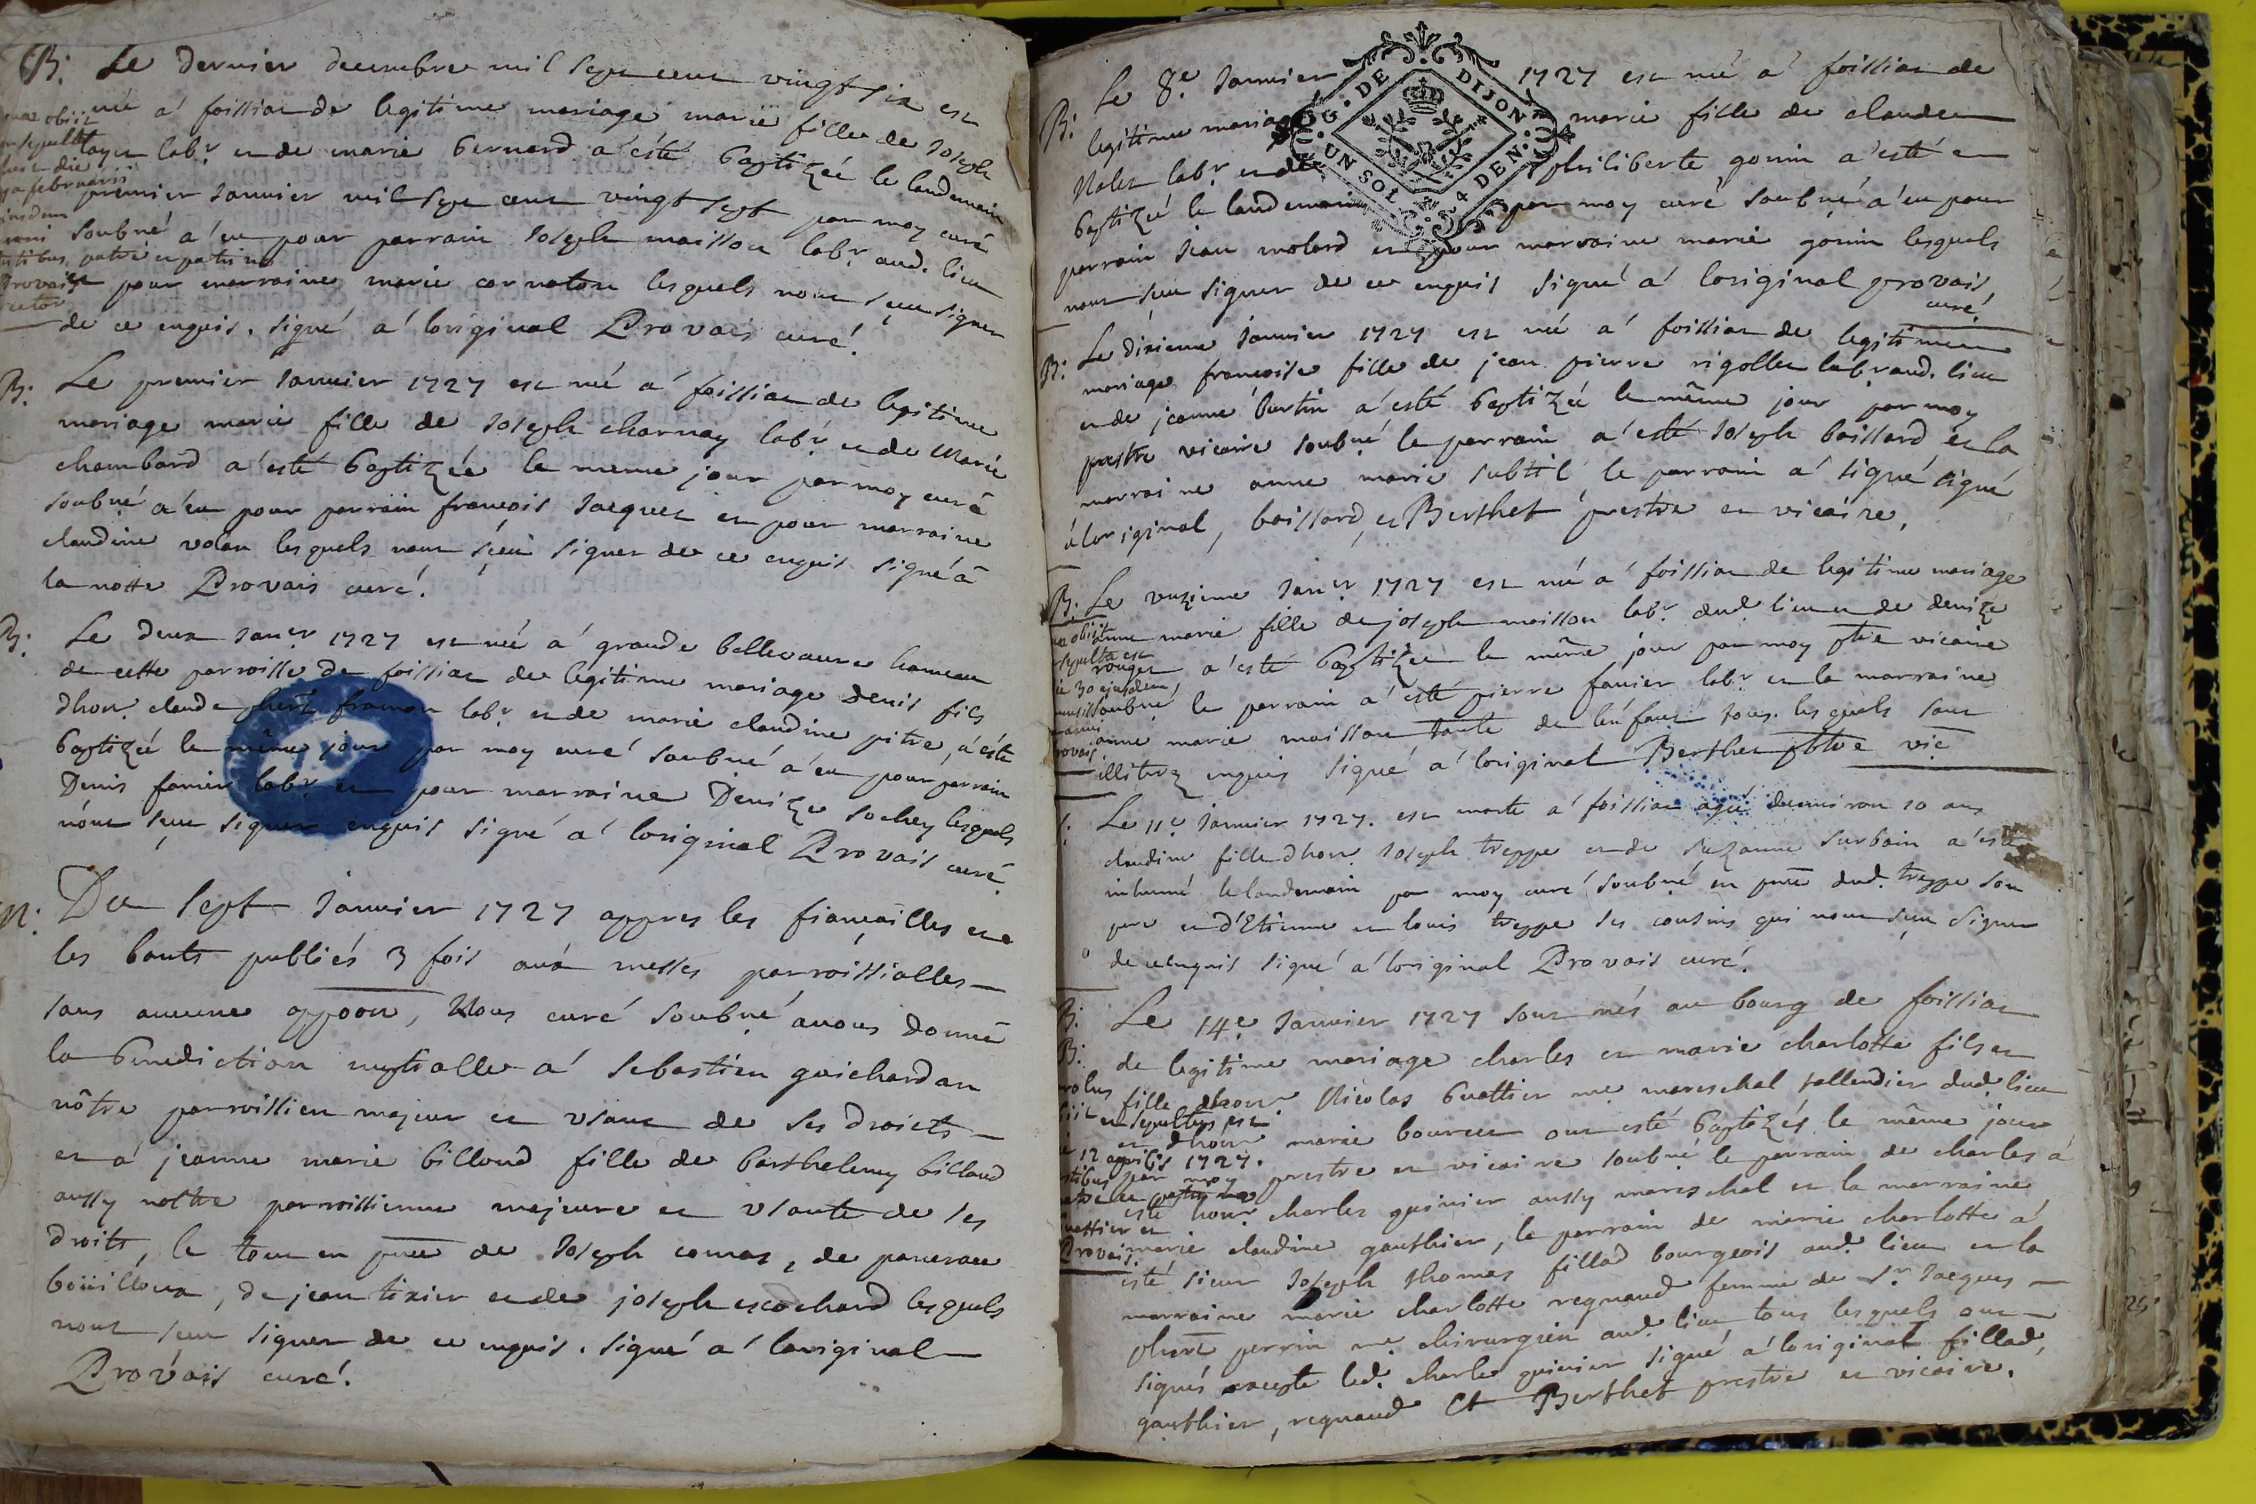 B. Le dernier decembre mil sept cent vingt six est
née a foissiat de legitime mariage marie fille de Joseph
labr. et de marie bernard a esté baptizée le landemain
premier Janvier mil sept cent vingt sept par moy curé
soubné a eu pour parrain Joseph moisson labr. aud. lieu
et pour marraine marie lesquels nont sceu signer
de ce enquis. signé a loriginal Provais curé.
B. Le premier Janvier 1727 est né a foissiat de legitime
mariage marie fille de Joseph charnay labr. et de Marie
chambard a esté baptizée le meme jour par moy curé
soubné a eu pour parrain françois Jacquet et pour marraine
claudine volan lesquels nont sceu signer de ce enquis signé a
la notte Provais curé.
B. Le deux Janer 1727 est né a grande bellevavre hameau
de cette parroisse de foissiat de legitime mariage Denis fils
dhon. claude labr. et de marie claudine pitre, a esté
baptizé le même jour par moy curé soubné a eu pour parrain
Denis favier labr. et pour marraine Denize sochey lesquels
nont sceu signer enquis signé a loriginal Provais curé
M. Du sept Janvier 1727 appres les fiançailles et
les bants publiés 3 fois aux messes parroissialles
sans aucune oppoon, Nous curé soubné avons donné
la benediction nuptialle a Sebastien guichardan
nôtre parroissien majeur et usant de ses droicts
et a jeanne marie billoud fille de barthelemy billoud
aussy nottre parroissienne majeure et usante de ses
droits, le tout en pnce de Joseph comas, de pancrace
boüilloux, de jean tixier et de joseph escochard lesquels
nont sceu signer de ce enquis. signé a loriginal
Provais curé.
B. Le 8e. Janvier 1727 est né a foissiat de
legitime mariage marie fille de claude
Nalet labr. et de philiberte gonin a esté
baptizé le landemain par moy curé soubné a eu pour
parrain Jean molard et pour marraine marie gonin lesquels
nont sceu signer de ce enquis signé a loriginal provais
curé.
B. Le dixieme Janvier 1727 est né a foissiat de legitime
mariage françoise fille de jean pierre rigollet labr. aud. lieu
et de jeanne burtin a esté baptizée le même jour par moy
prestre vicaire soubné le parrain a esté Joseph boissard et la
marraine anne marie subtil le parrain a signé signé
a loriginal, boissard, et Berthet prestre et vicaire.
B. Le unzieme Janer 1727 est né a foissiat de legitime mariage
anne marie fille de joseph moisson labr. dud. lieu et de denize
rouget a esté baptizée le même jour par moy ptre vicaire
soubné le parrain a esté pierre favier labr. et la marraine
anne marie moisson tante de lenfant tous lesquels sont
illitrez enquis signé a loriginal Berthet pbtre vic
Le 11e Janvier 1727. est morte a foissiat agée denviron 10 ans
claudine fille dhon. Joseph treppe et de suzanne surbain a esté
inhumé le landemain par moy curé soubné en pnce dud. treppe son
pere et d'Etienne et louis treppe ses cousins qui nont sceu signer
de ce enquis signé a loriginal Provais curé.
B. Le 14e Janvier 1727 sont nés au bourg de foissiat
B. de legitime mariage charles et marie charlotte fils et
fille dhon. Nicolas guattier me mareschal tallendier dud. lieu
et dhon. marie bourcet ont esté baptizés le même jour
par moy prestre et vicaire soubné le parrain de charles a
esté hon. charles guinier aussy mareschal et la marraine
marie claudine gauthier, le parrain de marie charlotte a
esté sieur Joseph thomas fillod bourgeois aud. lieu et la
marraine marie charlotte regnaud femme de Sr. Jacques
phert perrin me. chirurgien aud. lieu tous lesquels ont
signés excepte led. charle guinier signé a loriginal fillod,
gauthier, regnaud Et Berthet prestre et vicaire.
G. DE DIJON
UN SOL 4 DEN.